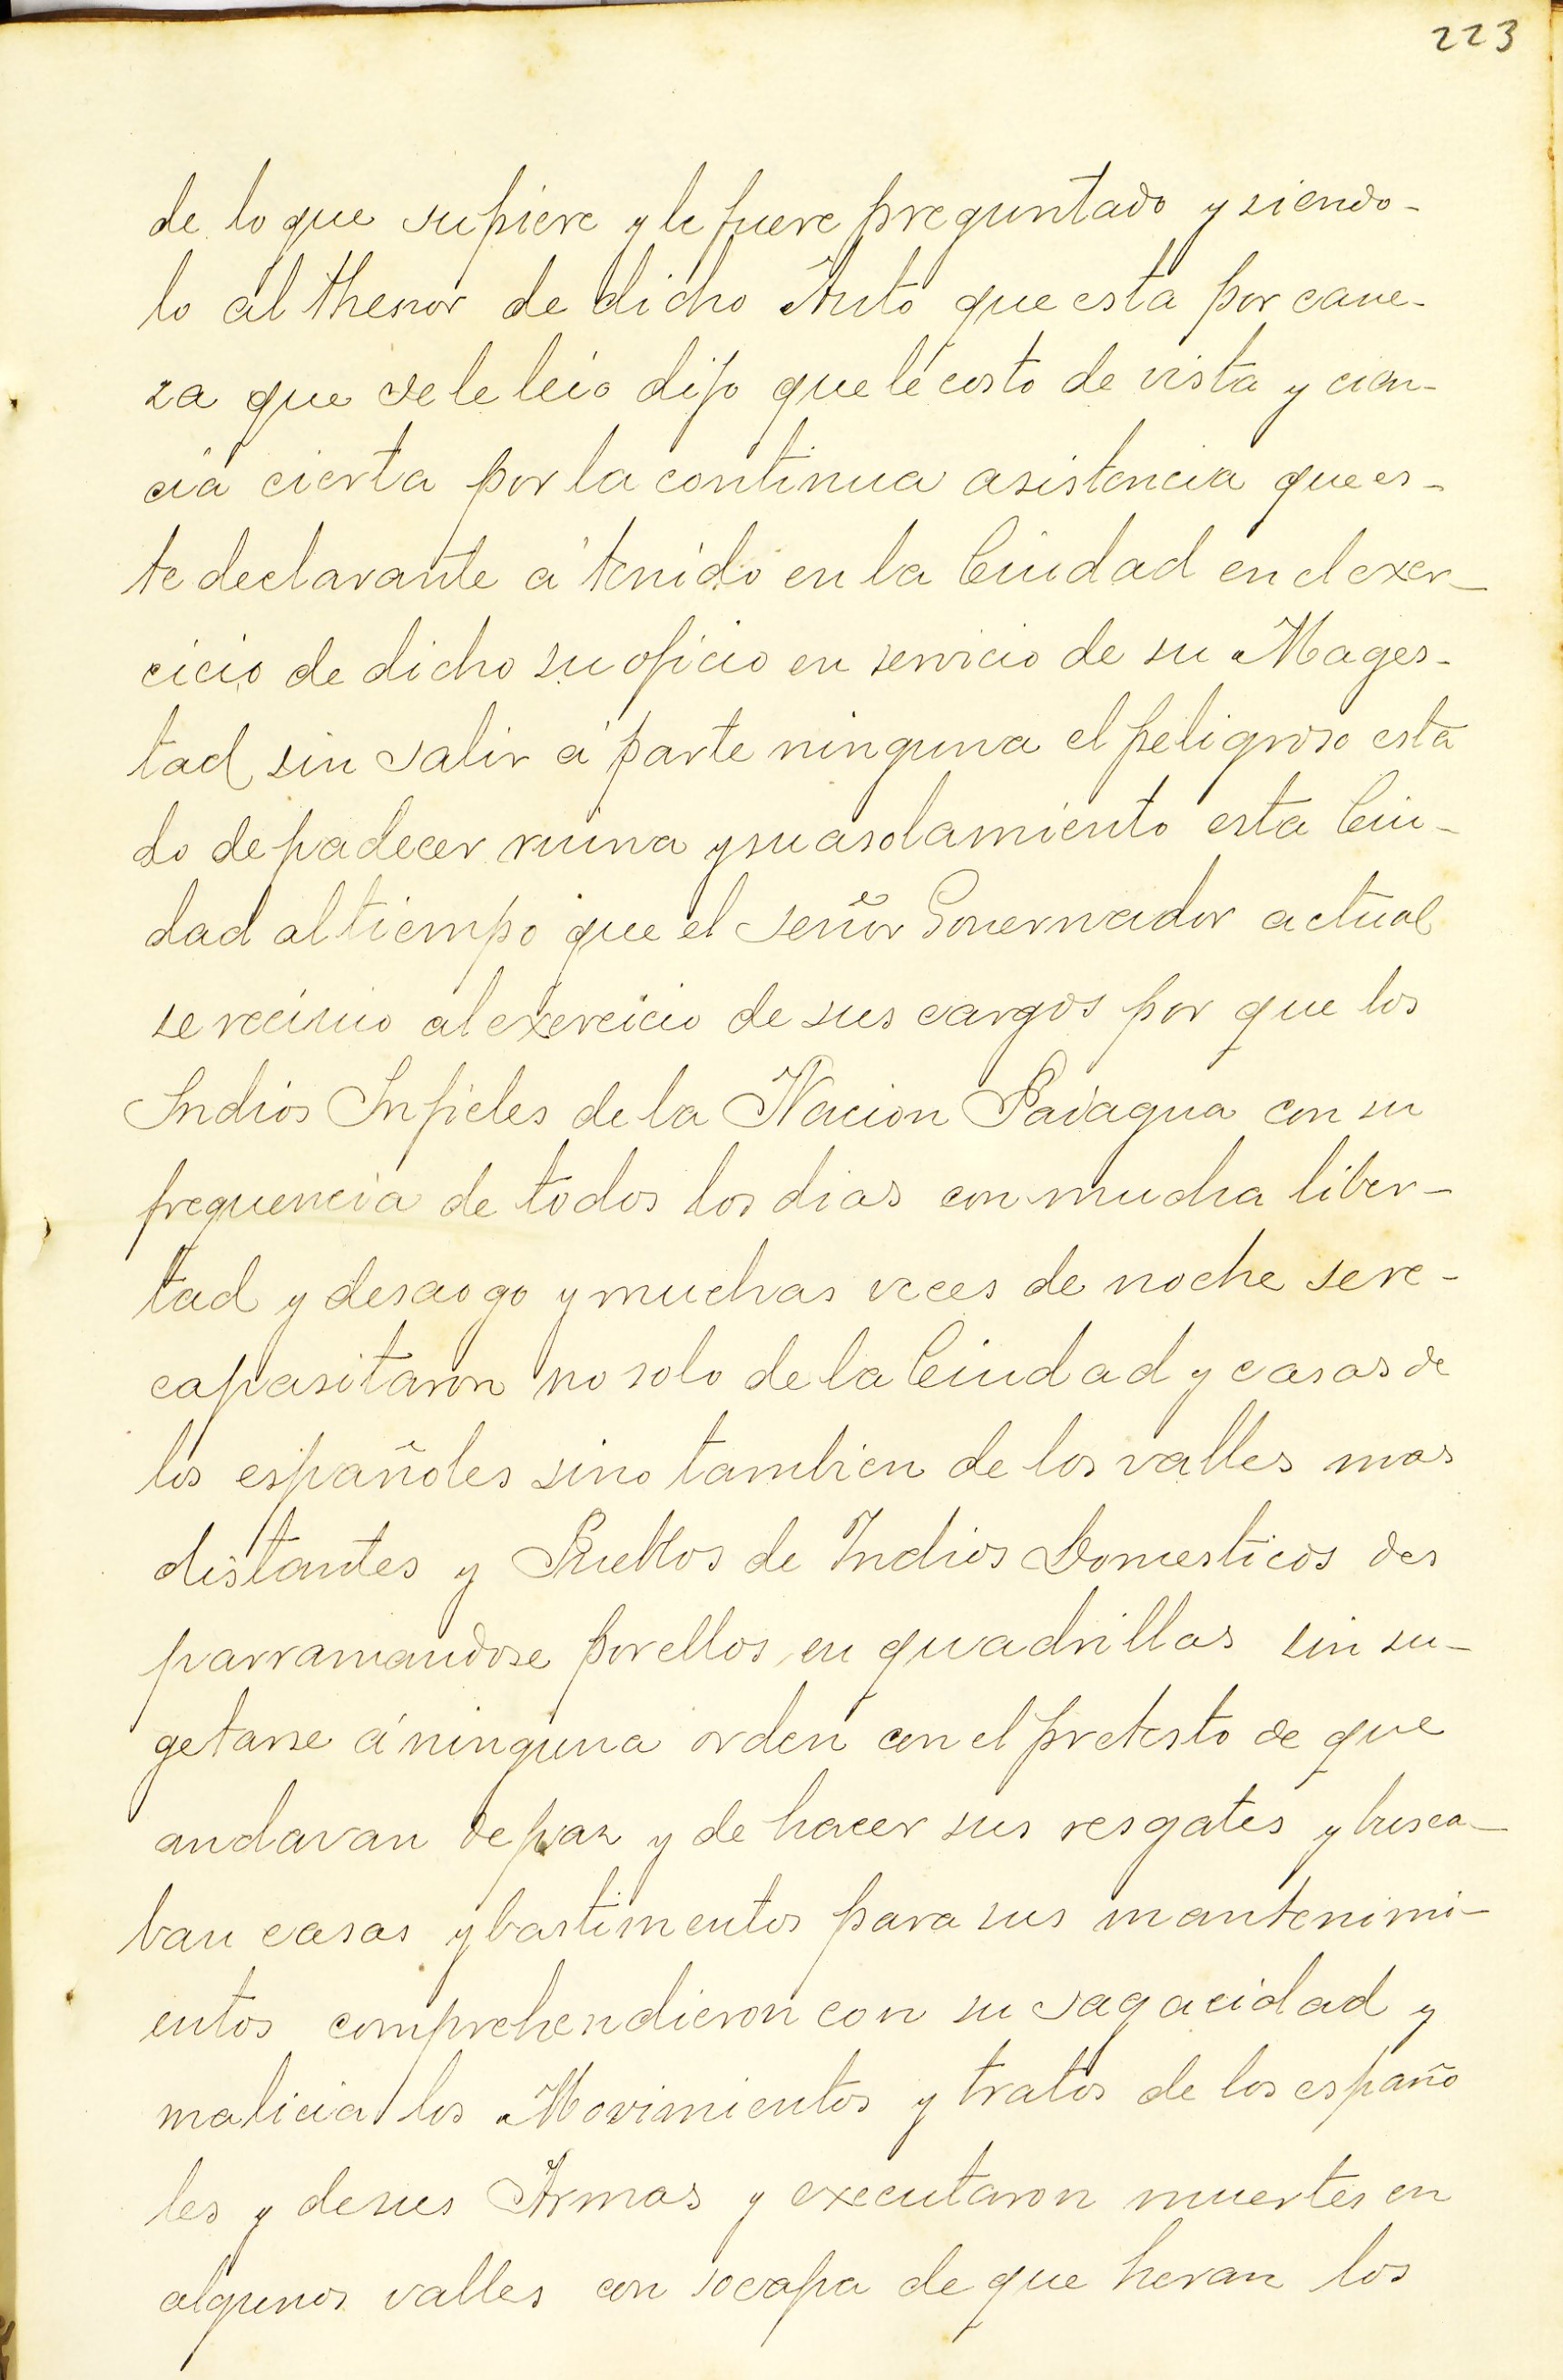 223
de lo que supiere y le fuere preguntado y siendo-
lo al thenor de dicho Auto que esta por cave-
za que se le leio dijo que le costo de vista y cien-
cia cierta por la continua asistencia que es-
te declarante á tenido en la Ciudad en el exer-
cicio de dicho su oficio en servicio de su Mages-
tad sin salir á parte ninguna el peligroso esta
do de padecer ruina y su asolamiento esta Ciu-
dad al tiempo que el señor Governador actual
se reciuio al exercicio de sus cargos por que los
Indios Infieles de la Nacion Paiagua con su
frequencia de todos los dias con mucha liber-
tad y desaogo y muchas veces de noche se re-
capasitaron no solo de la Ciudad y casas de
los españoles sino tambien de los valles mas
distantes y Pueblos de Indios Domesticos des
parramandose por ellos en quadrillas sin su-
getarse á ninguna orden con el pretesto de que
andavan de paz y de hacer sus resgates y busca-
ban casas y bastimentos para sus mantenimi-
entos comprehendieron con su sagacidad y
malicia los Movimientos y tratos de los españo
les y de sus Armas y executaron muertes en
algunos valles con socapa de que heran los